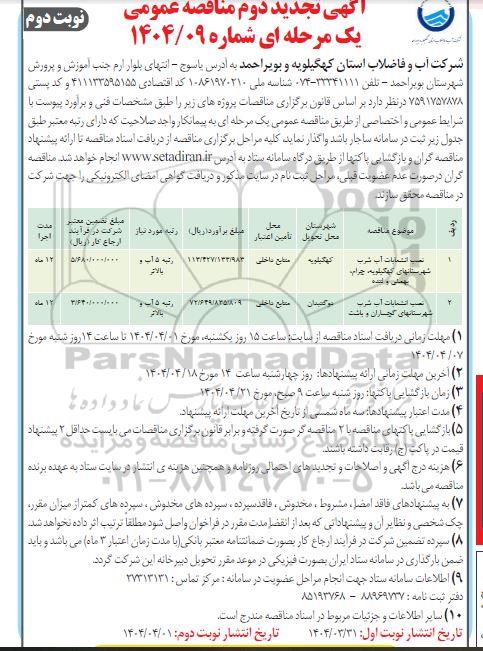 آگهی تجدید دوم مناقصه عمومی
یک مرحله ای شماره ۱۴۰۴/۰۹
نوبت دوم
شرکت آب و فاضلاب استان کهگیلویه و بویراحمد به آدرس یاسوج - انتهای بلوار ارم جنب آموزش و پرورش
شهرستان بویراحمد - تلفن ۳۳۳۴۱۱۱۱-۰۷۴ شناسه ملی ۱۰۸۶۱۹۷۰۲۱۰ کد اقتصادی ۴۱۱۱۳۳۵۹۵۱۵۵ و کد پستی
۷۵۹۱۷۵۷۸۷۸ درنظر دارد بر اساس قانون برگزاری مناقصات پروژه های زیر را طبق مشخصات فنی و برآورد پیوست با
شرایط عمومی و اختصاصی از طریق مناقصه عمومی یک مرحله ای به پیمانکار واجد صلاحیت که دارای رتبه معتبر طبق
جدول زیر ثبت در سامانه ساجار باشد واگذار نماید. کلیه مراحل برگزاری مناقصه از دریافت اسناد مناقصه تا ارائه پیشنهاد
مناقصه گران و بازگشایی پاکتها از طریق درگاه سامانه ستاد به آدرس www.setadiran.ir انجام خواهد شد. مناقصه
گران درصورت عدم عضویت قبلی، مراحل ثبت نام در سایت مذکور و دریافت گواهی امضای الکترونیکی را جهت شرکت
در مناقصه محقق سازند.
ردیف موضوع مناقصه شهرستان محل تحویل محل تأمین اعتبار مبلغ برآورد(ریال) رتبه مورد نیاز مبلغ تضمین معتبر شرکت در فرآیند ارجاع کار (ریال) مدت اجرا
۱ نصب انشعابات آب شرب شهرستانهای کهگیلویه، چرام، بهمئی و لنده کهگیلویه منابع داخلی ۱۱۳/۴۲۷/۱۳۳/۹۸۳ رتبه ۵ آب و بالاتر ۵/۶۸۰/۰۰۰/۰۰۰ ۱۲ ماه
۲ نصب انشعابات آب شرب شهرستانهای گچساران و باشت دوگنبدان منابع داخلی ۷۲/۶۴۹/۸۳۵/۸۰۹ رتبه ۵ آب و بالاتر ۳/۶۴۰/۰۰۰/۰۰۰ ۱۲ ماه
۱) مهلت زمانی دریافت اسناد مناقصه از سایت: ساعت ۱۵ روز یکشنبه، مورخ ۱۴۰۴/۰۴/۰۱ تا ساعت ۱۴ روز شنبه مورخ
۱۴۰۴/۰۴/۰۷
۲) آخرین مهلت زمانی ارائه پیشنهادها: روز چهارشنبه ساعت ۱۴ مورخ ۱۴۰۴/۰۴/۱۸
۳) زمان بازگشایی پاکتها: روز شنبه ساعت ۹ صبح، مورخ ۱۴۰۴/۰۴/۲۱
۴) مدت اعتبار پیشنهادها: سه ماه شمسی از تاریخ آخرین مهلت ارائه پیشنهاد.
۵) بازگشایی پاکتهای مناقصه با ۲ مناقصه گر صورت گرفته و برابر قانون برگزاری مناقصات می بایست حداقل ۲ پیشنهاد
قیمت در پاکت (ج) رقابت داشته باشند.
۶) هزینه درج آگهی و اصلاحات و تجدید های احتمالی روزنامه و همچنین هزینه ی انتشار در سایت ستاد به عهده برنده
مناقصه می باشد.
۷) به پیشنهادهای فاقد امضا، مشروط ، مخدوش ، فاقدسپرده ، سپرده های مخدوش ، سپرده های کمتراز میزان مقرر،
چک شخصی و نظایر آن و پیشنهاداتی که بعد از انقضا مدت مقرر در فراخوان واصل شود مطلقا ترتیب اثر داده نخواهد شد.
۸) سپرده تضمین شرکت در فرآیند ارجاع کار بصورت ضمانتنامه معتبر بانکی(با مدت زمان اعتبار ۳ ماه) می باشد و باید
ضمن بارگذاری در سامانه ستاد ایران بصورت فیزیکی در موعد مقرر تحویل دبیرخانه این شرکت گردد.
۹) اطلاعات سامانه ستاد جهت انجام مراحل عضویت در سامانه : مرکز تماس : ۲۷۳۱۳۱۳۱
دفتر ثبت نامه : ۸۸۹۶۹۷۳۷ - ۸۵۱۹۳۷۶۸
۱۰) سایر اطلاعات و جزئیات مربوط در اسناد مناقصه مندرج است.
تاریخ انتشار نوبت اول: ۱۴۰۴/۰۳/۳۱ تاریخ انتشار نوبت دوم: ۱۴۰۴/۰۴/۰۱
ParsNamadData
۰۲۱-۸۸۳۴۹۶۷۰-۵